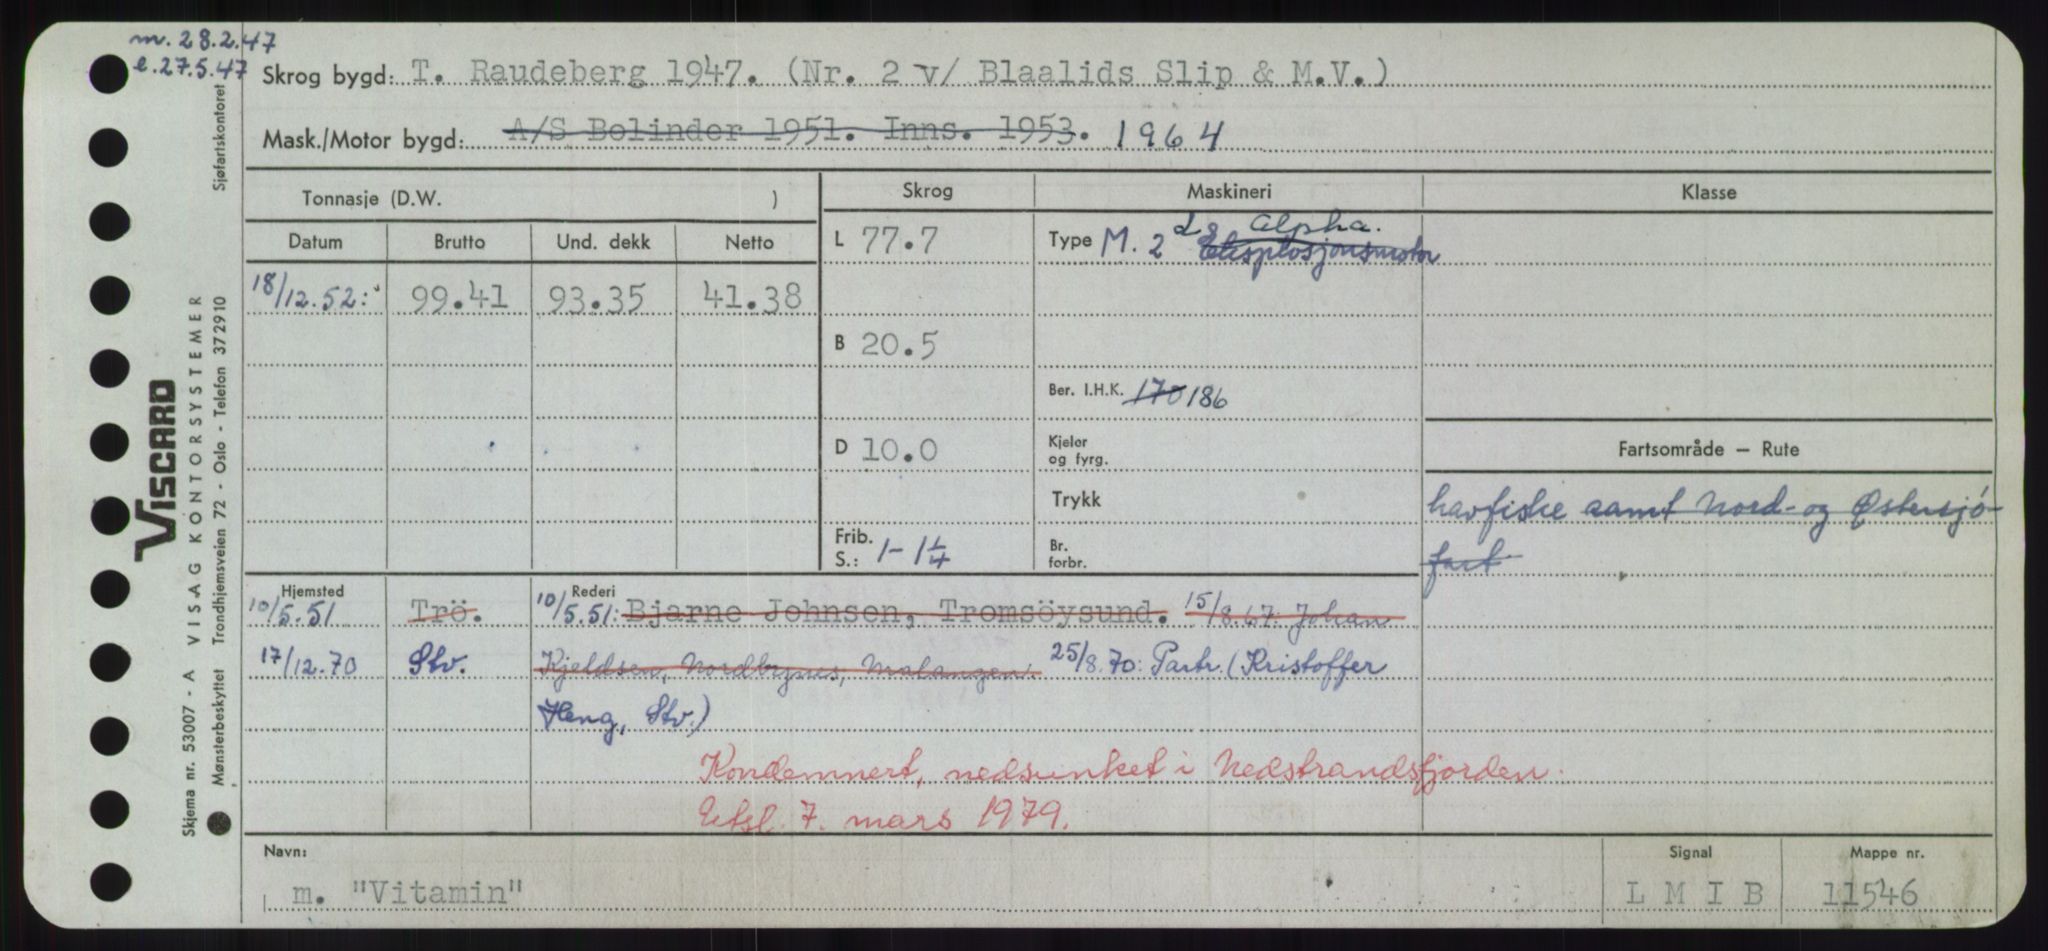 m. 28.2.47
e. 27.5.47
Skrog bygd: T. Raudeberg 1947. (Nr. 2 v/ Blaalids Slip & M.V.)
Mask./Motor bygd: A/S Bolinder 1951. Inns. 1953. 1964
Tonnasje (D.W. )
Skrog
Maskineri
Klasse
Datum
Brutto
Und. dekk
Netto
L 77.7
Type M. 2 Alpha.
Eksplosjonsmotor
18/12.52: 99.41 93.35 41.38
B 20.5
Ber. I.H.K. 170 186
D 10.0
Kjeler
og fyrg.
Fartsområde – Rute
Trykk
havfiske samt Nord- og Østersjö-
fart
Frib.
S.: 1-1 1/4
Br.
forbr.
Hjemsted
Rederi
10/5.51 Trö. 10/5.51: Bjarne Johnsen, Tromsöysund. 15/8.67: Johan
17/12.70 Stv. Kjeldsen, Nordbynes, Malangen. 25/8.70: Partr. (Kristoffer
Heng, Stv.)
Kondemnert, nedsunket i Nedstrandsfjorden.
Utsl. 7. mars 1979.
Navn:
Signal
Mappe nr.
m. "Vitamin"
L M I B
11546
VISCARD
Skjema nr. 53007 - A VISAG KONTORSYSTEMER
Mønsterbeskyttet Trondhjemsveien 72 - Oslo - Telefon 372910
Sjøfartskontoret